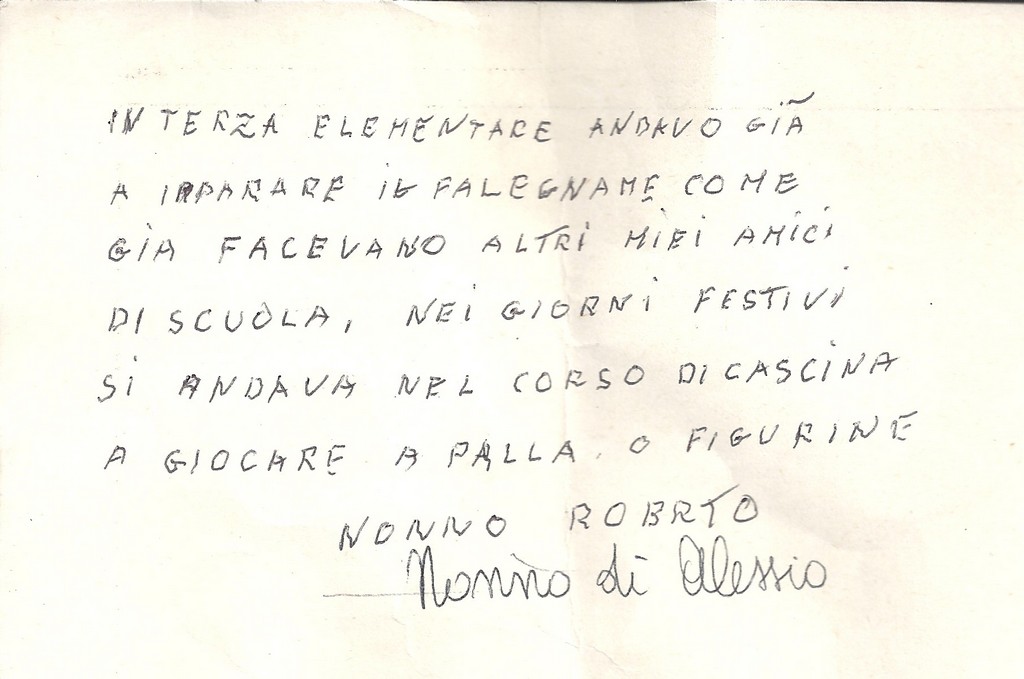 IN TERZA ELEMENTARE ANDAVO GIÀ
A IMPARARE IL FALEGNAME COME
GIA FACEVANO ALTRI MIEI AMICI
DI SCUOLA, NEI GIORNI FESTIVI
SI ANDAVA NEL CORSO DI CASCINA
A GIOCARE A PALLA. O FIGURINE
NONNO ROBRTO
Nonno di Alessio